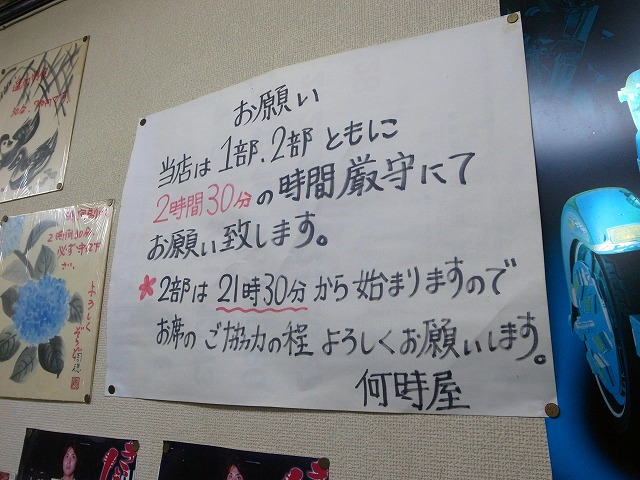 お願い
当店は1部、2部ともに
2時間30分の時間厳守にて
お願い致します。
*2部は21時30分から始まりますので
お席のご協力の程よろしくお願いします。
何時屋
2時間30分
必ず
よろしく